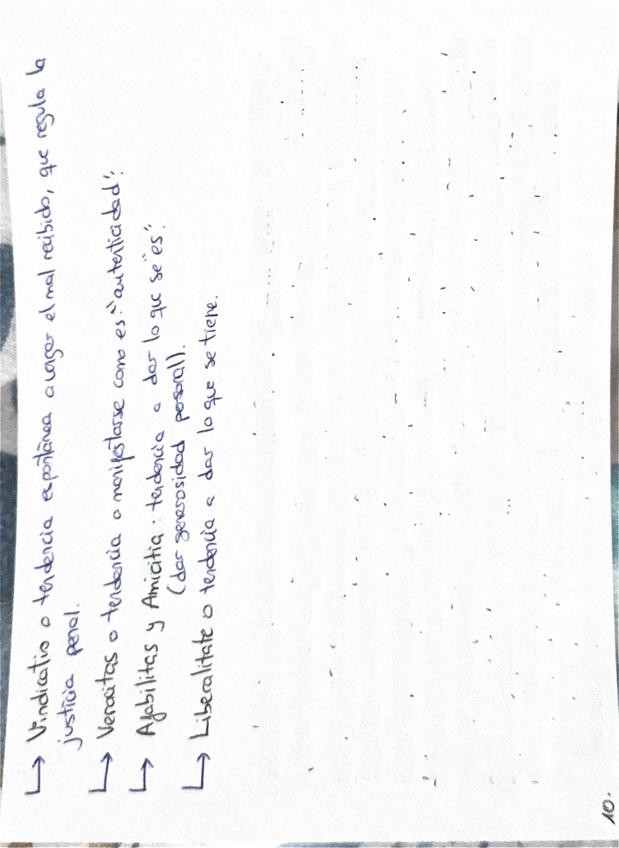 ↳ Vindicatio o tendencia espontánea a vengar el mal recibido, que regula la
justicia penal.
↳ Veracitas o tendencia a manifestarse como es: "autenticidad".
↳ Afabilitas y Amicitia: tendencia a dar lo que se "es".
(dar generosidad personal).
↳ Liberalitate o tendencia a dar lo que se tiene.
10.